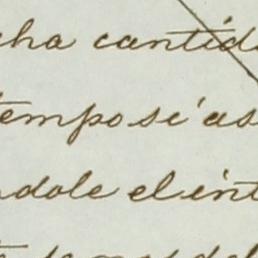 cha cantid
tempo si as
ndole el int